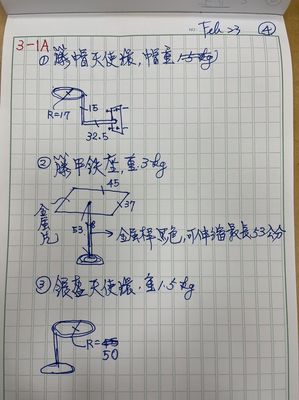 NO. Feb 23 ④
3-1A
① 籐帽天使環,帽重1.5kg
15
R=17
32.5
② 籐甲鉄座,重3kg
45
金屬片
37
53
金屬桿黑色,可伸縮最長53公分
③ 銀盔天使環.重1.5kg
R=45
50